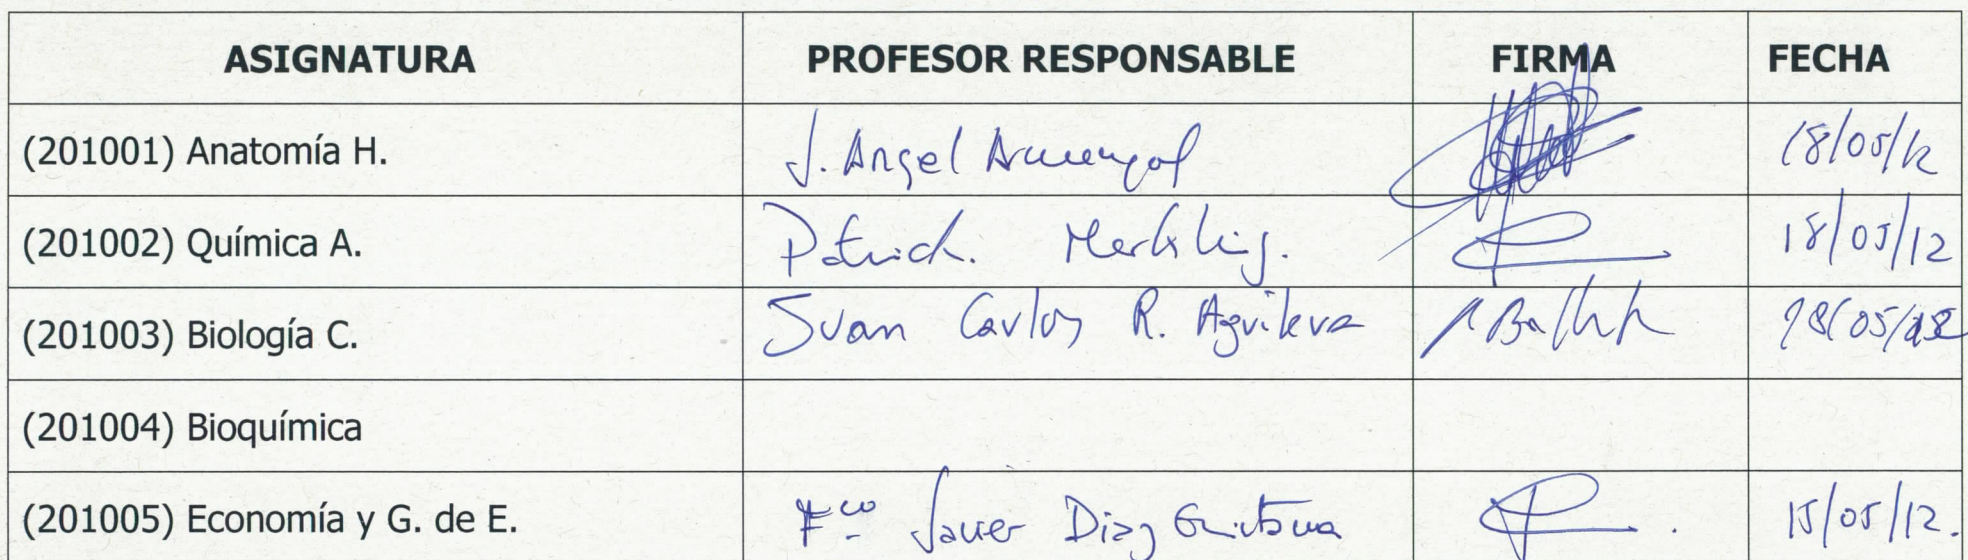 ASIGNATURA PROFESOR RESPONSABLE FIRMA FECHA
(201001) Anatomía H. J. Angel Armengol 18/05/12
(201002) Química A. Patrick Merkling. 18/05/12
(201003) Biología C. Juan Carlos R. Aguilera 18/05/12
(201004) Bioquímica
(201005) Economía y G. de E. Fco Javier Diaz 15/05/12.